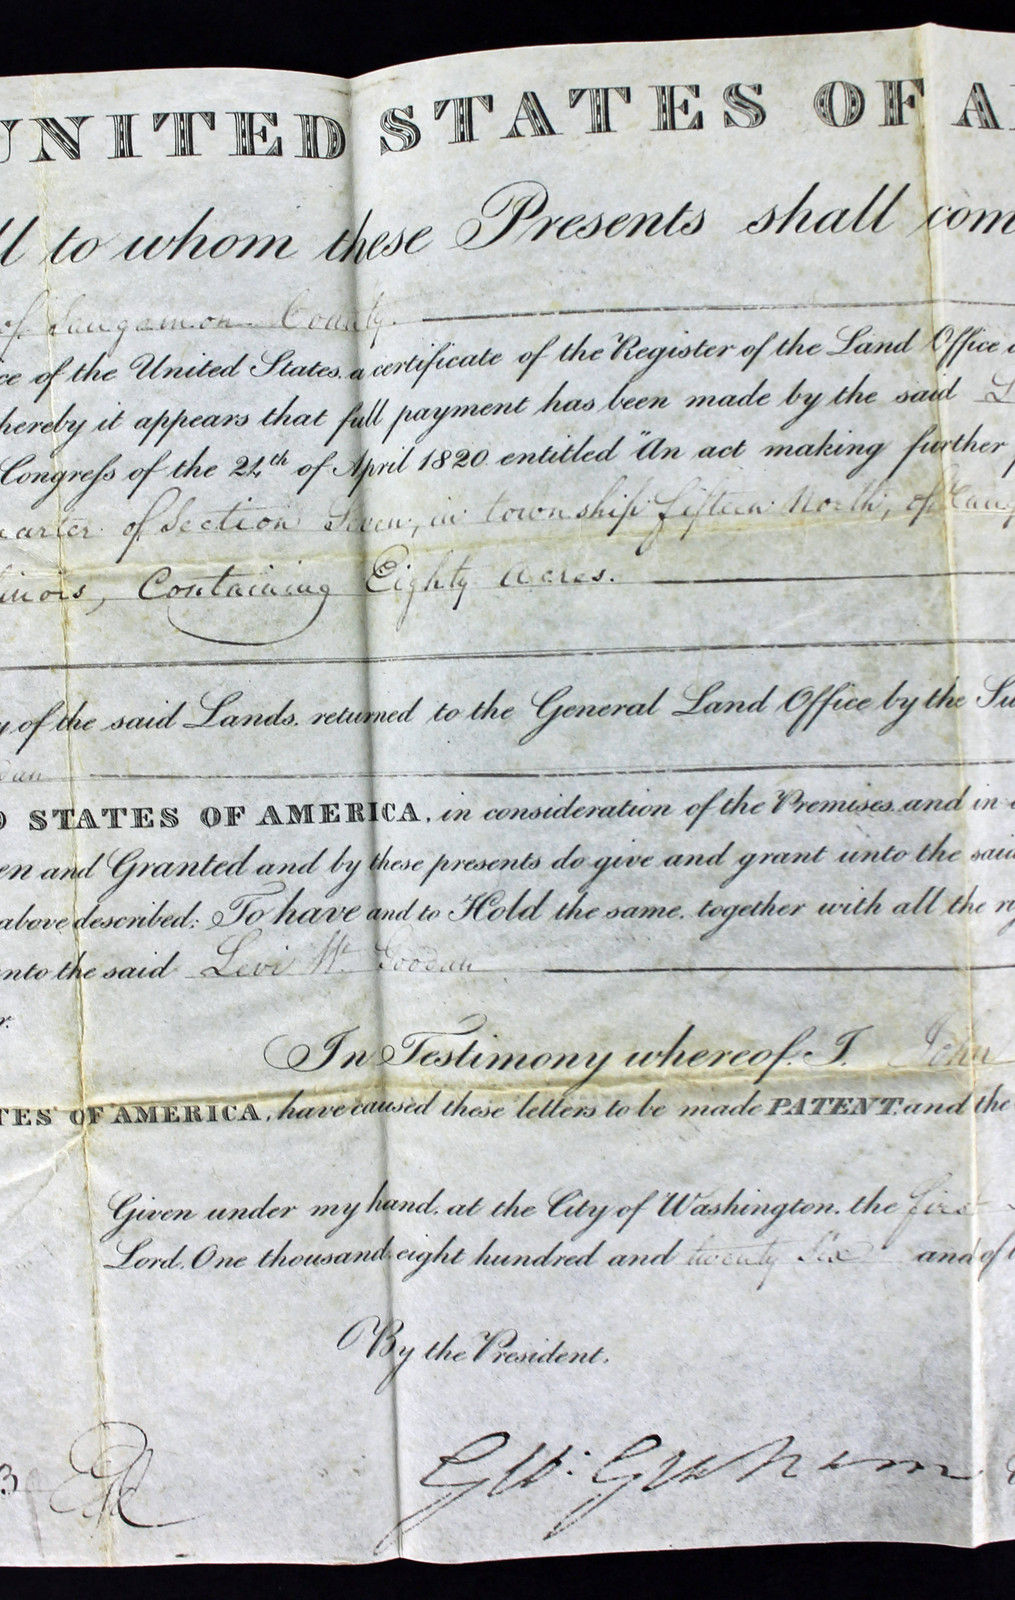 UNITED STATES OF A
ll to whom these Presents shall com
of Sangamon County.
ce of the United States, a certificate of the Register of the Land Office
hereby it appears that full payment has been made by the said L
Congress of the 24th of April 1820. entitled "An act making further
uarter of Section Seven, in township fifteen North, of Rang
linois, Containing Eighty Acres.
y of the said Lands, returned to the General Land Office by the Su
dan
D STATES OF AMERICA, in consideration of the Premises, and in
en and Granted and by these presents do give and grant unto the said
above described: To have and to Hold the same, together with all the ri
unto the said Levi W. Goodan
r.
In Testimony whereof, I, John
TES OF AMERICA, have caused these letters to be made PATENT, and the
Given under my hand, at the City of Washington, the first
Lord, One thousand eight hundred and twenty Six and of
By the President.
B
G. W. Graham